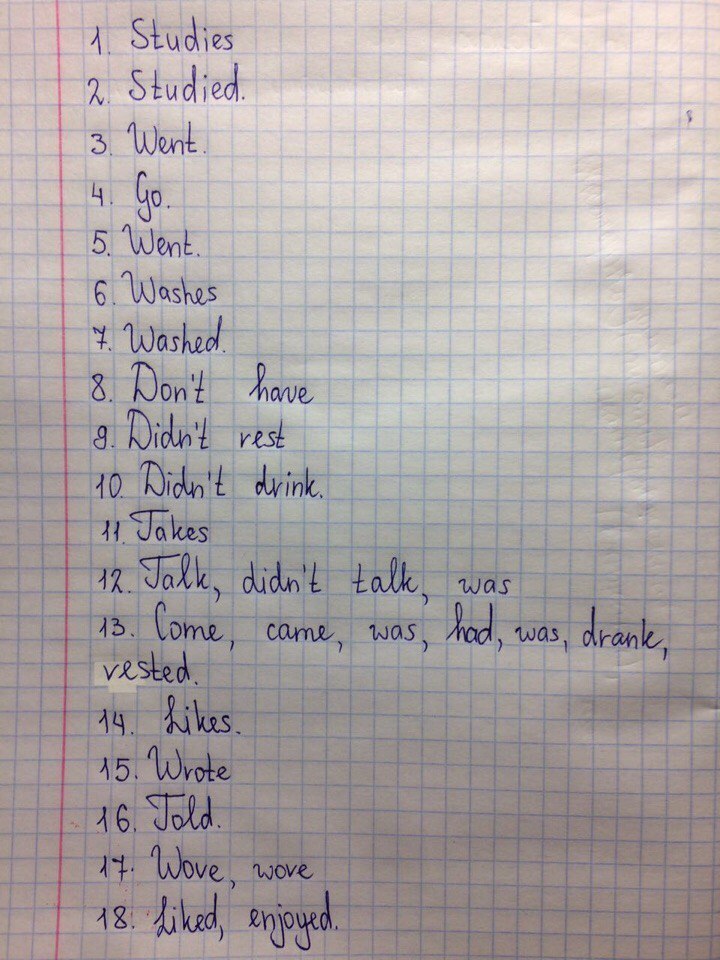 1. Studies
2. Studied.
3. Went.
4. Go.
5. Went.
6. Washes
7. Washed.
8. Don't have
9. Didn't rest
10. Didn't drink.
11. Takes
12. Talk, didn't talk, was
13. Come, came, was, had, was, drank,
rested.
14. Likes.
15. Wrote
16. Told.
17. Wove, wove
18. Liked, enjoyed.